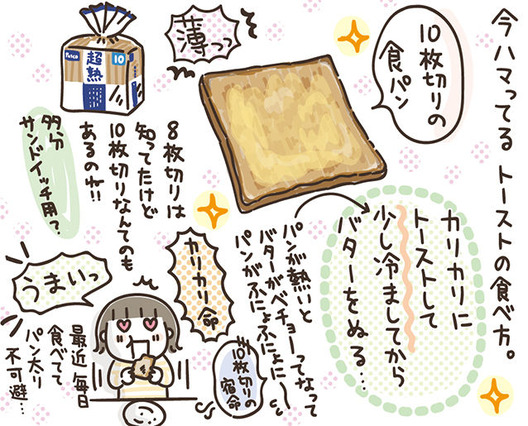 今ハマってるトーストの食べ方。
10枚切りの
食パン
薄っっ
Pasco
超熟
10
8枚切りは
知ってたけど
10枚切りなんてのも
あるのね!!
多分
サンドイッチ用?
カリカリに
トーストして
少し冷ましてから
バターをぬる…
パンが熱いと
バターがベチョーってなって
パンがふにょふにょに〜
10枚切りの
宿命
カリカリ命
うまいっ
最近毎日
食べてて
パン太り
不可避…